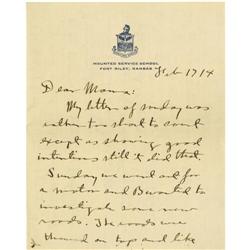 MOUNTED SERVICE SCHOOL
FORT RILEY, KANSAS
Feb 17 14
Dear Mama:
My letter of sunday was
rather too short to count
except as showing good
intentions still it did that.
Sunday we went out for
a motor and B wanted to
investigate some new
roads. The roads were
thawed on top and like